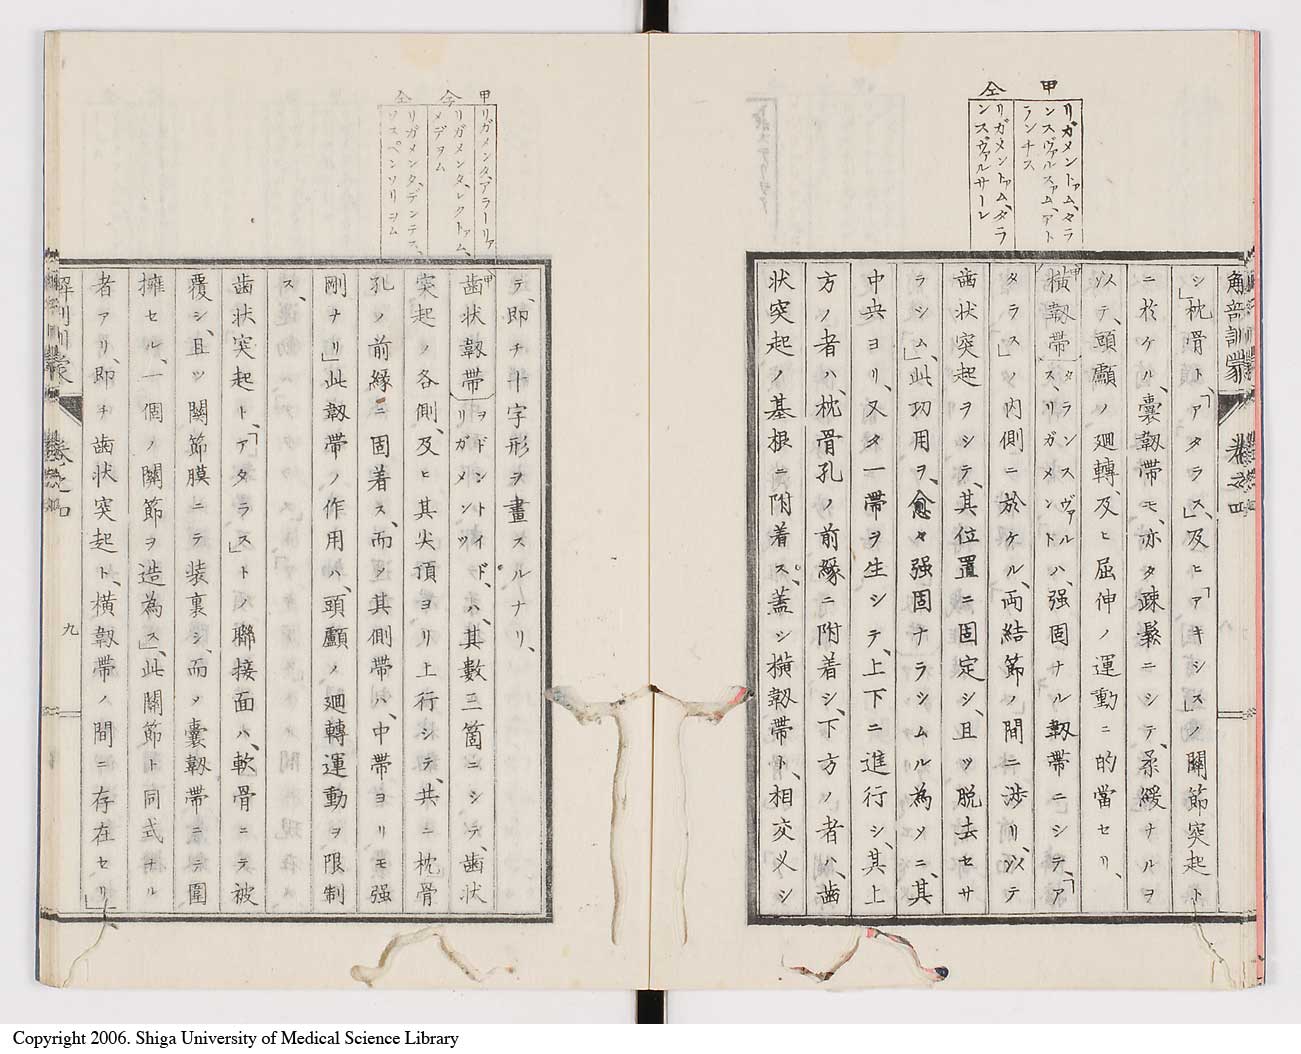 甲
リガメントァム、タラ
ンスヴルスァム、アト
ランチス
仝
リガメントァム、ダラ
ンスヴァルサーレ
解剖訓蒙
卷之四
シ」枕骨ト、「アタラス」及ヒ「アキシス」ノ關節突起ト
ニ於ケル、囊韌帶モ、亦タ疎鬆ニシテ、柔緩ナルヲ
以テ、頭顱ノ廻轉、及ヒ屈伸ノ運動ニ的當セリ、
甲橫韌帶タランスヴァルス、リガメンドハ、强固ナル韌帶ニシテ、「ア
タラス」ノ内側ニ於ケル、両結節ノ間ニ渉リ、以テ
齒状突起ヲシテ、其位置ニ固定シ、且ツ脱去セサ
ラシム」此功用ヲ、愈々强固ナラシムル為メニ、其
中央ヨリ、又タ一帶ヲ生シテ、上下ニ進行シ、其上
方ノ者ハ、枕骨孔ノ前緣ニ附着シ、下方ノ者ハ、齒
状突起ノ基根ニ附着ス、蓋シ橫韌帶ト、相交叉シ
甲
リガメンタ、アラーリア
仝
リガメンタ、レクトァム、
メデァム
仝
リガメンタ、デンテス、
ソスペンソリヨム
テ、即チ十字形ヲ畫スルナリ、
甲齒状韌帶ヲドントイド、リガメンツハ、其數三箇ニシテ、齒状
突起ノ各側、及ヒ其尖頂ヨリ上行シテ、共ニ枕骨
孔ノ前緣ニ固着ス、而シ其側帶ハ、中帶ヨリモ强
剛ナリ」此韌帶ノ作用ハ、頭顱ノ廻轉運動ヲ限制
ス、
齒状突起ト、「アタラス」トノ聯接面ハ、軟骨ニテ被
覆シ、且ツ關節膜ニテ装裏シ、而メ囊韌帶ニテ圍
擁セル、一個ノ關節ヲ造為ス」此關節ト同式ナル
者アリ、即チ齒状突起ト、橫韌帶ノ間ニ存在セリ」
解剖訓蒙
卷之四
九
Copyright 2006. Shiga University of Medical Science Library